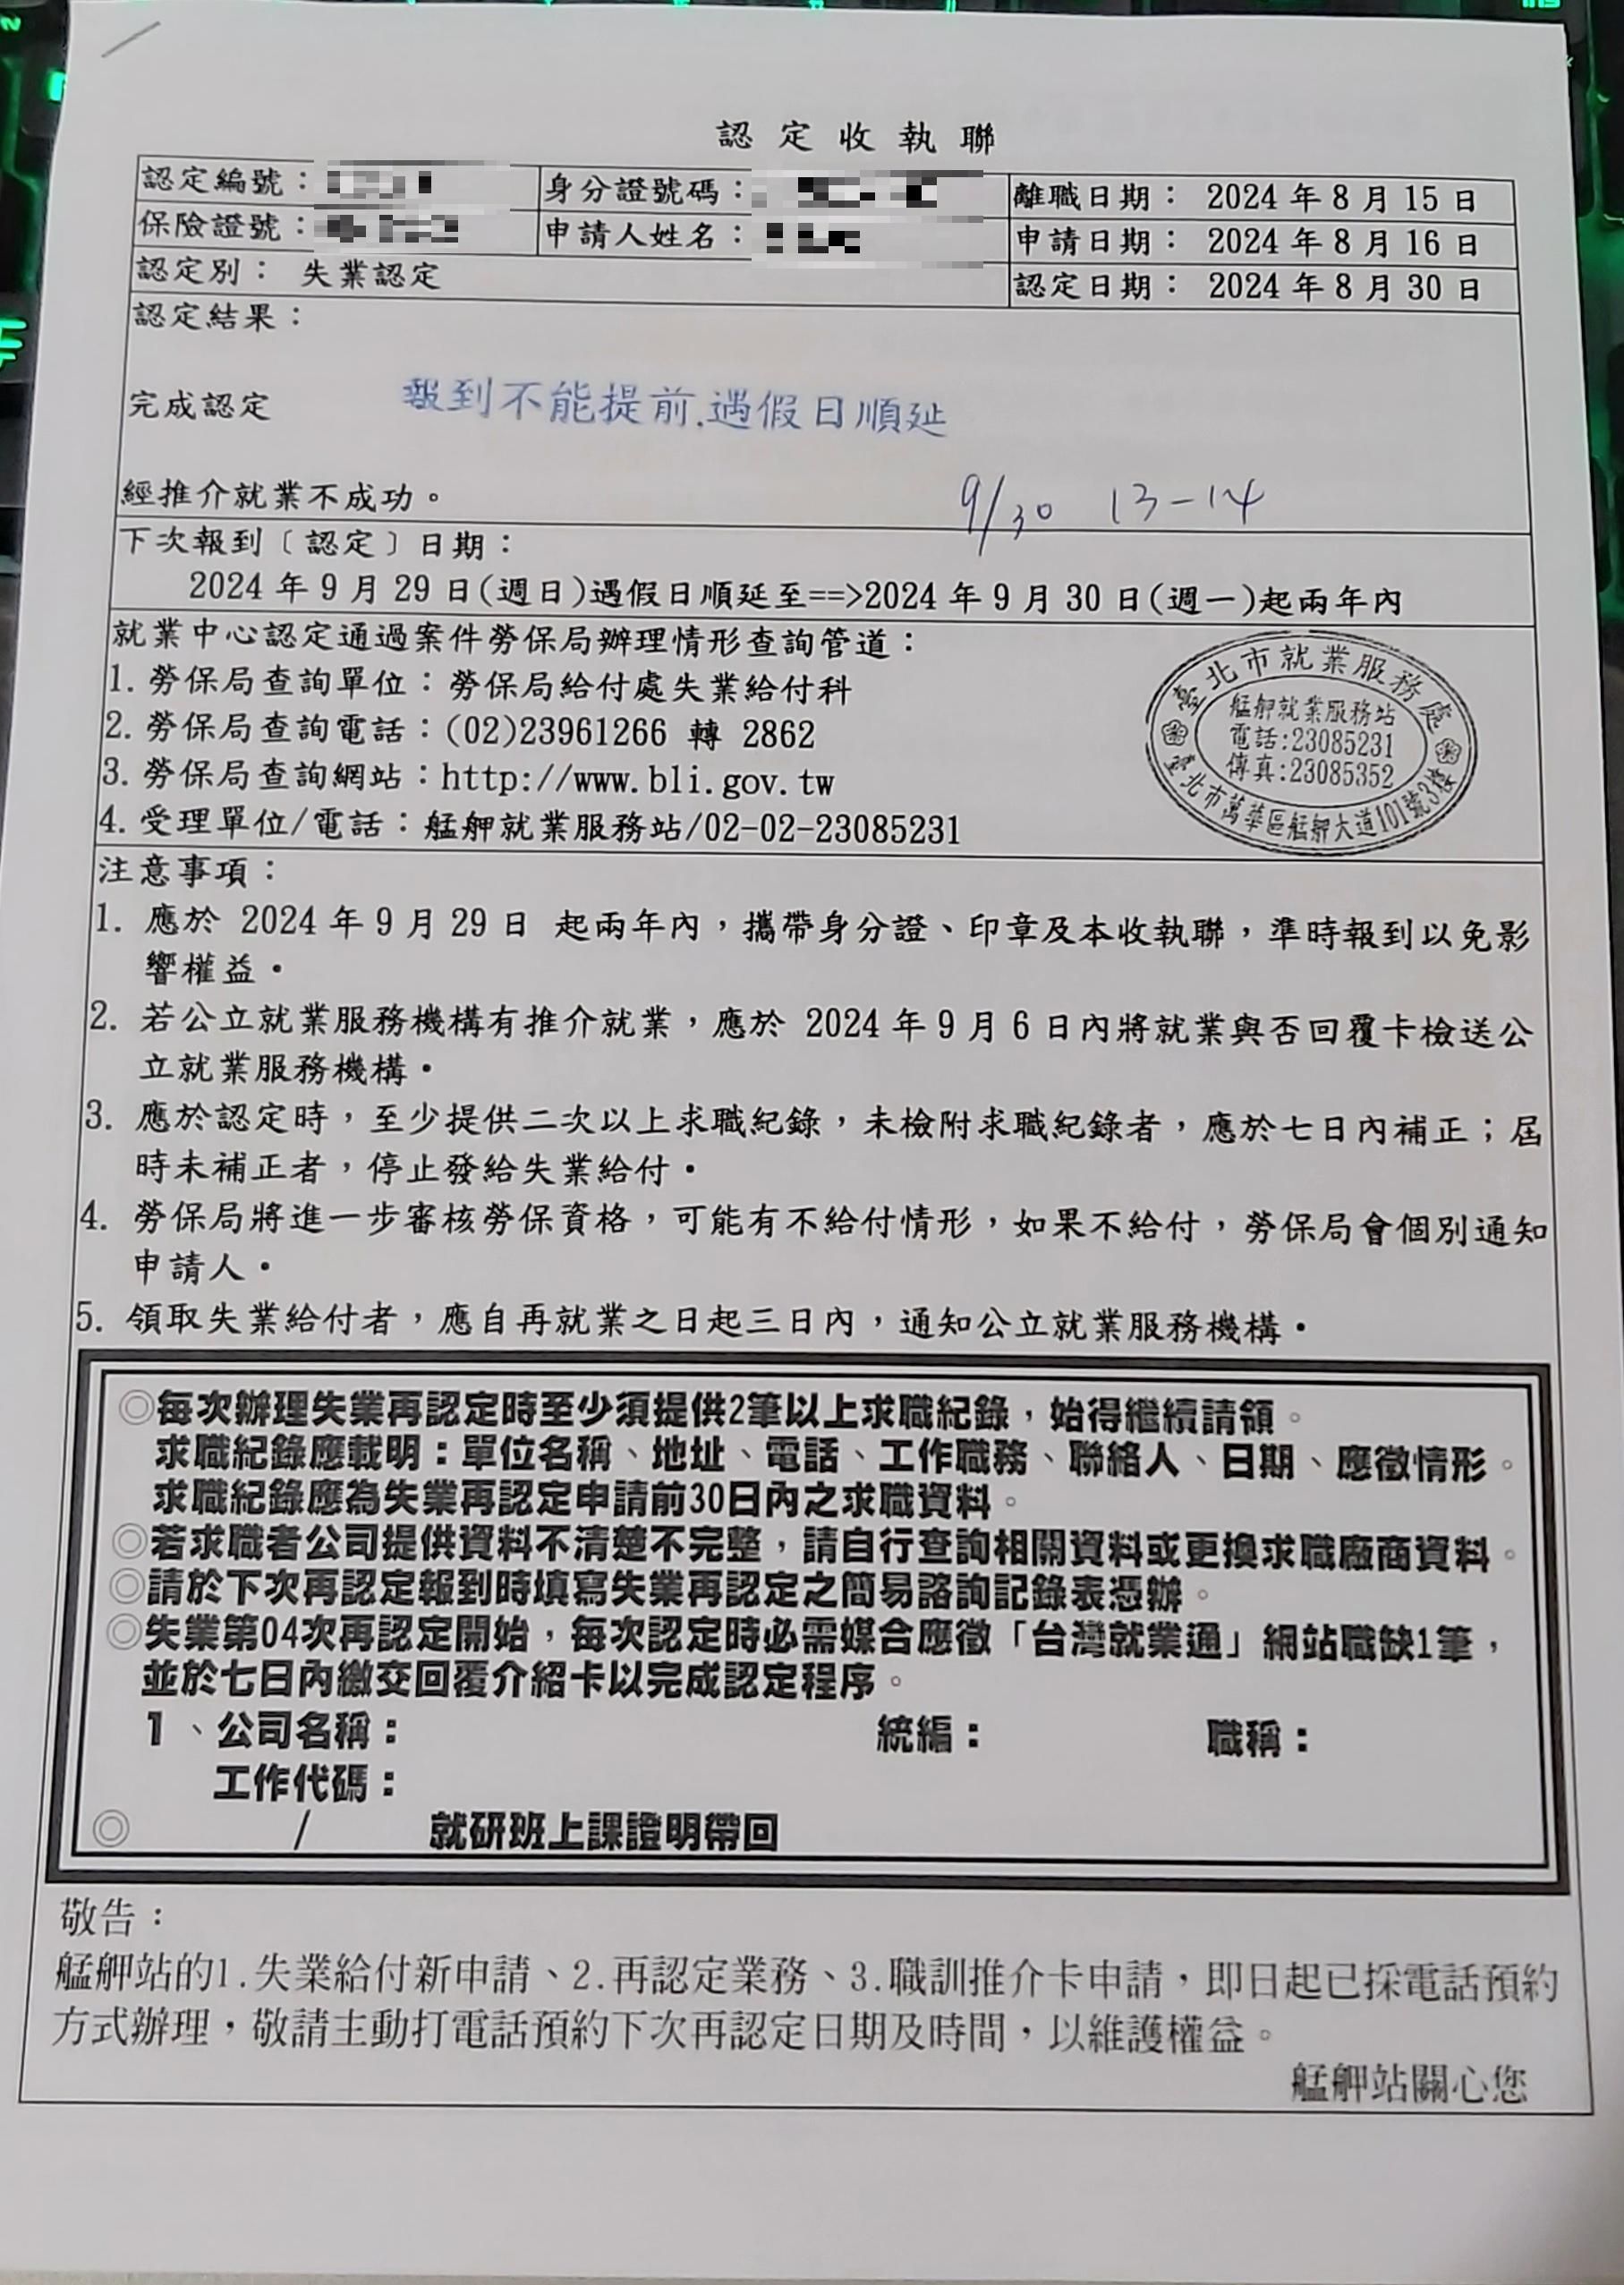 認定收執聯
認定編號： 身分證號碼： 離職日期： 2024年8月15日
保險證號： 申請人姓名： 申請日期： 2024年8月16日
認定別： 失業認定 認定日期： 2024年8月30日
認定結果：
完成認定 報到不能提前.遇假日順延
經推介就業不成功。 9/30 13-14
下次報到〔認定〕日期：
2024年9月29日(週日)遇假日順延至==>2024年9月30日(週一)起兩年內
就業中心認定通過案件勞保局辦理情形查詢管道：
1. 勞保局查詢單位：勞保局給付處失業給付科
2. 勞保局查詢電話：(02)23961266 轉 2862
3. 勞保局查詢網站：http://www.bli.gov.tw
4. 受理單位/電話：艋舺就業服務站/02-02-23085231
臺北市就業服務處
艋舺就業服務站
電話:23085231
傳真:23085352
臺北市萬華區艋舺大道101號3樓
注意事項：
1. 應於 2024年9月29日 起兩年內，攜帶身分證、印章及本收執聯，準時報到以免影
響權益。
2. 若公立就業服務機構有推介就業，應於 2024年9月6日內將就業與否回覆卡檢送公
立就業服務機構。
3. 應於認定時，至少提供二次以上求職紀錄，未檢附求職紀錄者，應於七日內補正；屆
時未補正者，停止發給失業給付。
4. 勞保局將進一步審核勞保資格，可能有不給付情形，如果不給付，勞保局會個別通知
申請人。
5. 領取失業給付者，應自再就業之日起三日內，通知公立就業服務機構。
◎每次辦理失業再認定時至少須提供2筆以上求職紀錄，始得繼續請領。
求職紀錄應載明：單位名稱、地址、電話、工作職務、聯絡人、日期、應徵情形。
求職紀錄應為失業再認定申請前30日內之求職資料。
◎若求職者公司提供資料不清楚不完整，請自行查詢相關資料或更換求職廠商資料。
◎請於下次再認定報到時填寫失業再認定之簡易諮詢記錄表憑辦。
◎失業第04次再認定開始，每次認定時必需媒合應徵「台灣就業通」網站職缺1筆，
並於七日內繳交回覆介紹卡以完成認定程序。
1、公司名稱： 統編： 職稱：
工作代碼：
◎ / 就研班上課證明帶回
敬告：
艋舺站的1.失業給付新申請、2.再認定業務、3.職訓推介卡申請，即日起已採電話預約
方式辦理，敬請主動打電話預約下次再認定日期及時間，以維護權益。
艋舺站關心您